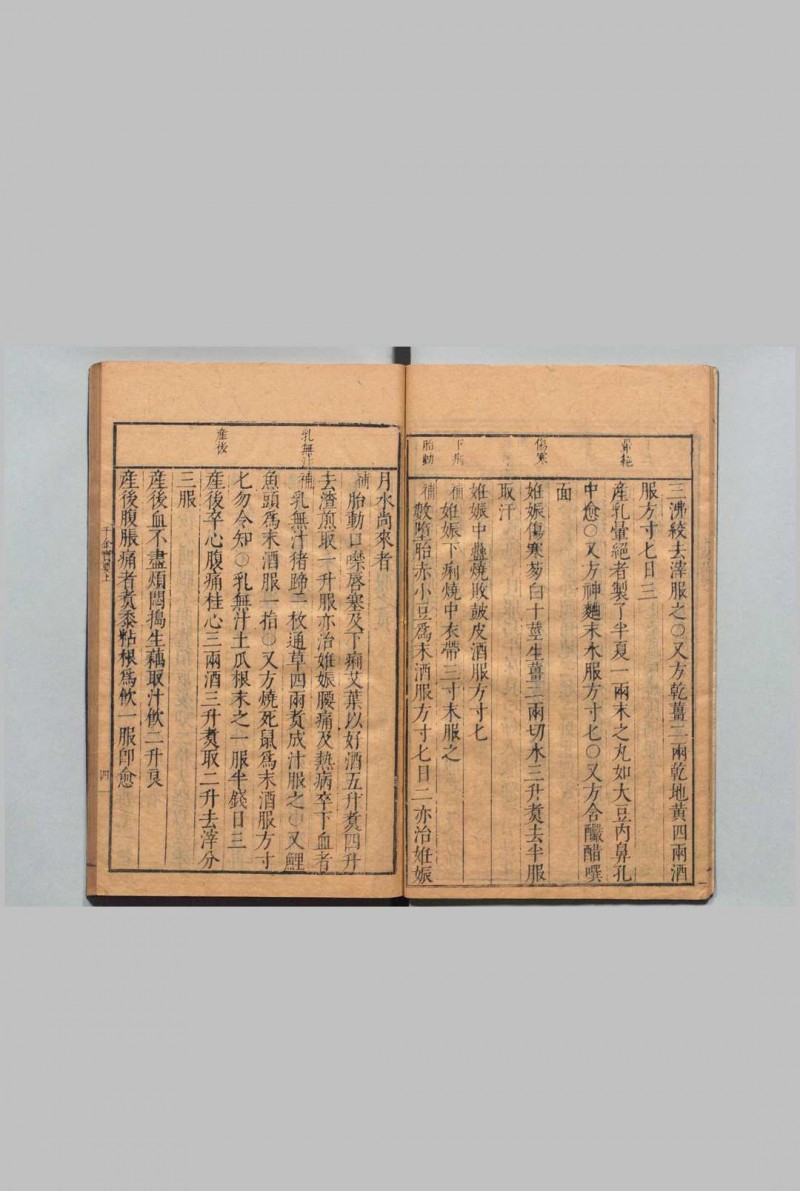 暈絶
傷寒
下痢
胎動
三沸絞去滓服之〇又方乾薑二兩乾地黄四兩酒
服方寸匕日三
産乳暈絶者製了半夏一兩末之丸如大豆内鼻孔
中愈〇又方神麯末水服方寸匕〇又方含釅醋噀
面
姙娠傷寒葱白十莖生薑二兩切水三升煑去半服
取汗
姙娠中蠱燒敗皷皮酒服方寸匕
補姙娠下痢燒中衣帶三寸末服之
補數墮胎赤小豆爲末酒服方寸匕日二亦治姙娠
乳無汁
産後
月水尚來者
補胎動口噤唇塞及下痢艾葉以好酒五升煑四升
去渣煎取一升服亦治姙娠腰痛及熱病卒下血者
補乳無汁猪蹄二枚通草四兩煑成汁服之〇又鯉
魚頭爲末酒服一指〇又方燒死鼠爲末酒服方寸
匕勿令知〇乳無汁土瓜根末之一服半錢日三
産後卒心腹痛桂心三兩酒三升煑取二升去滓分
三服
産後血不盡煩悶搗生藕取汁飲二升良
産後腹脹痛者煑黍粘根爲飲一服卽愈
上
四